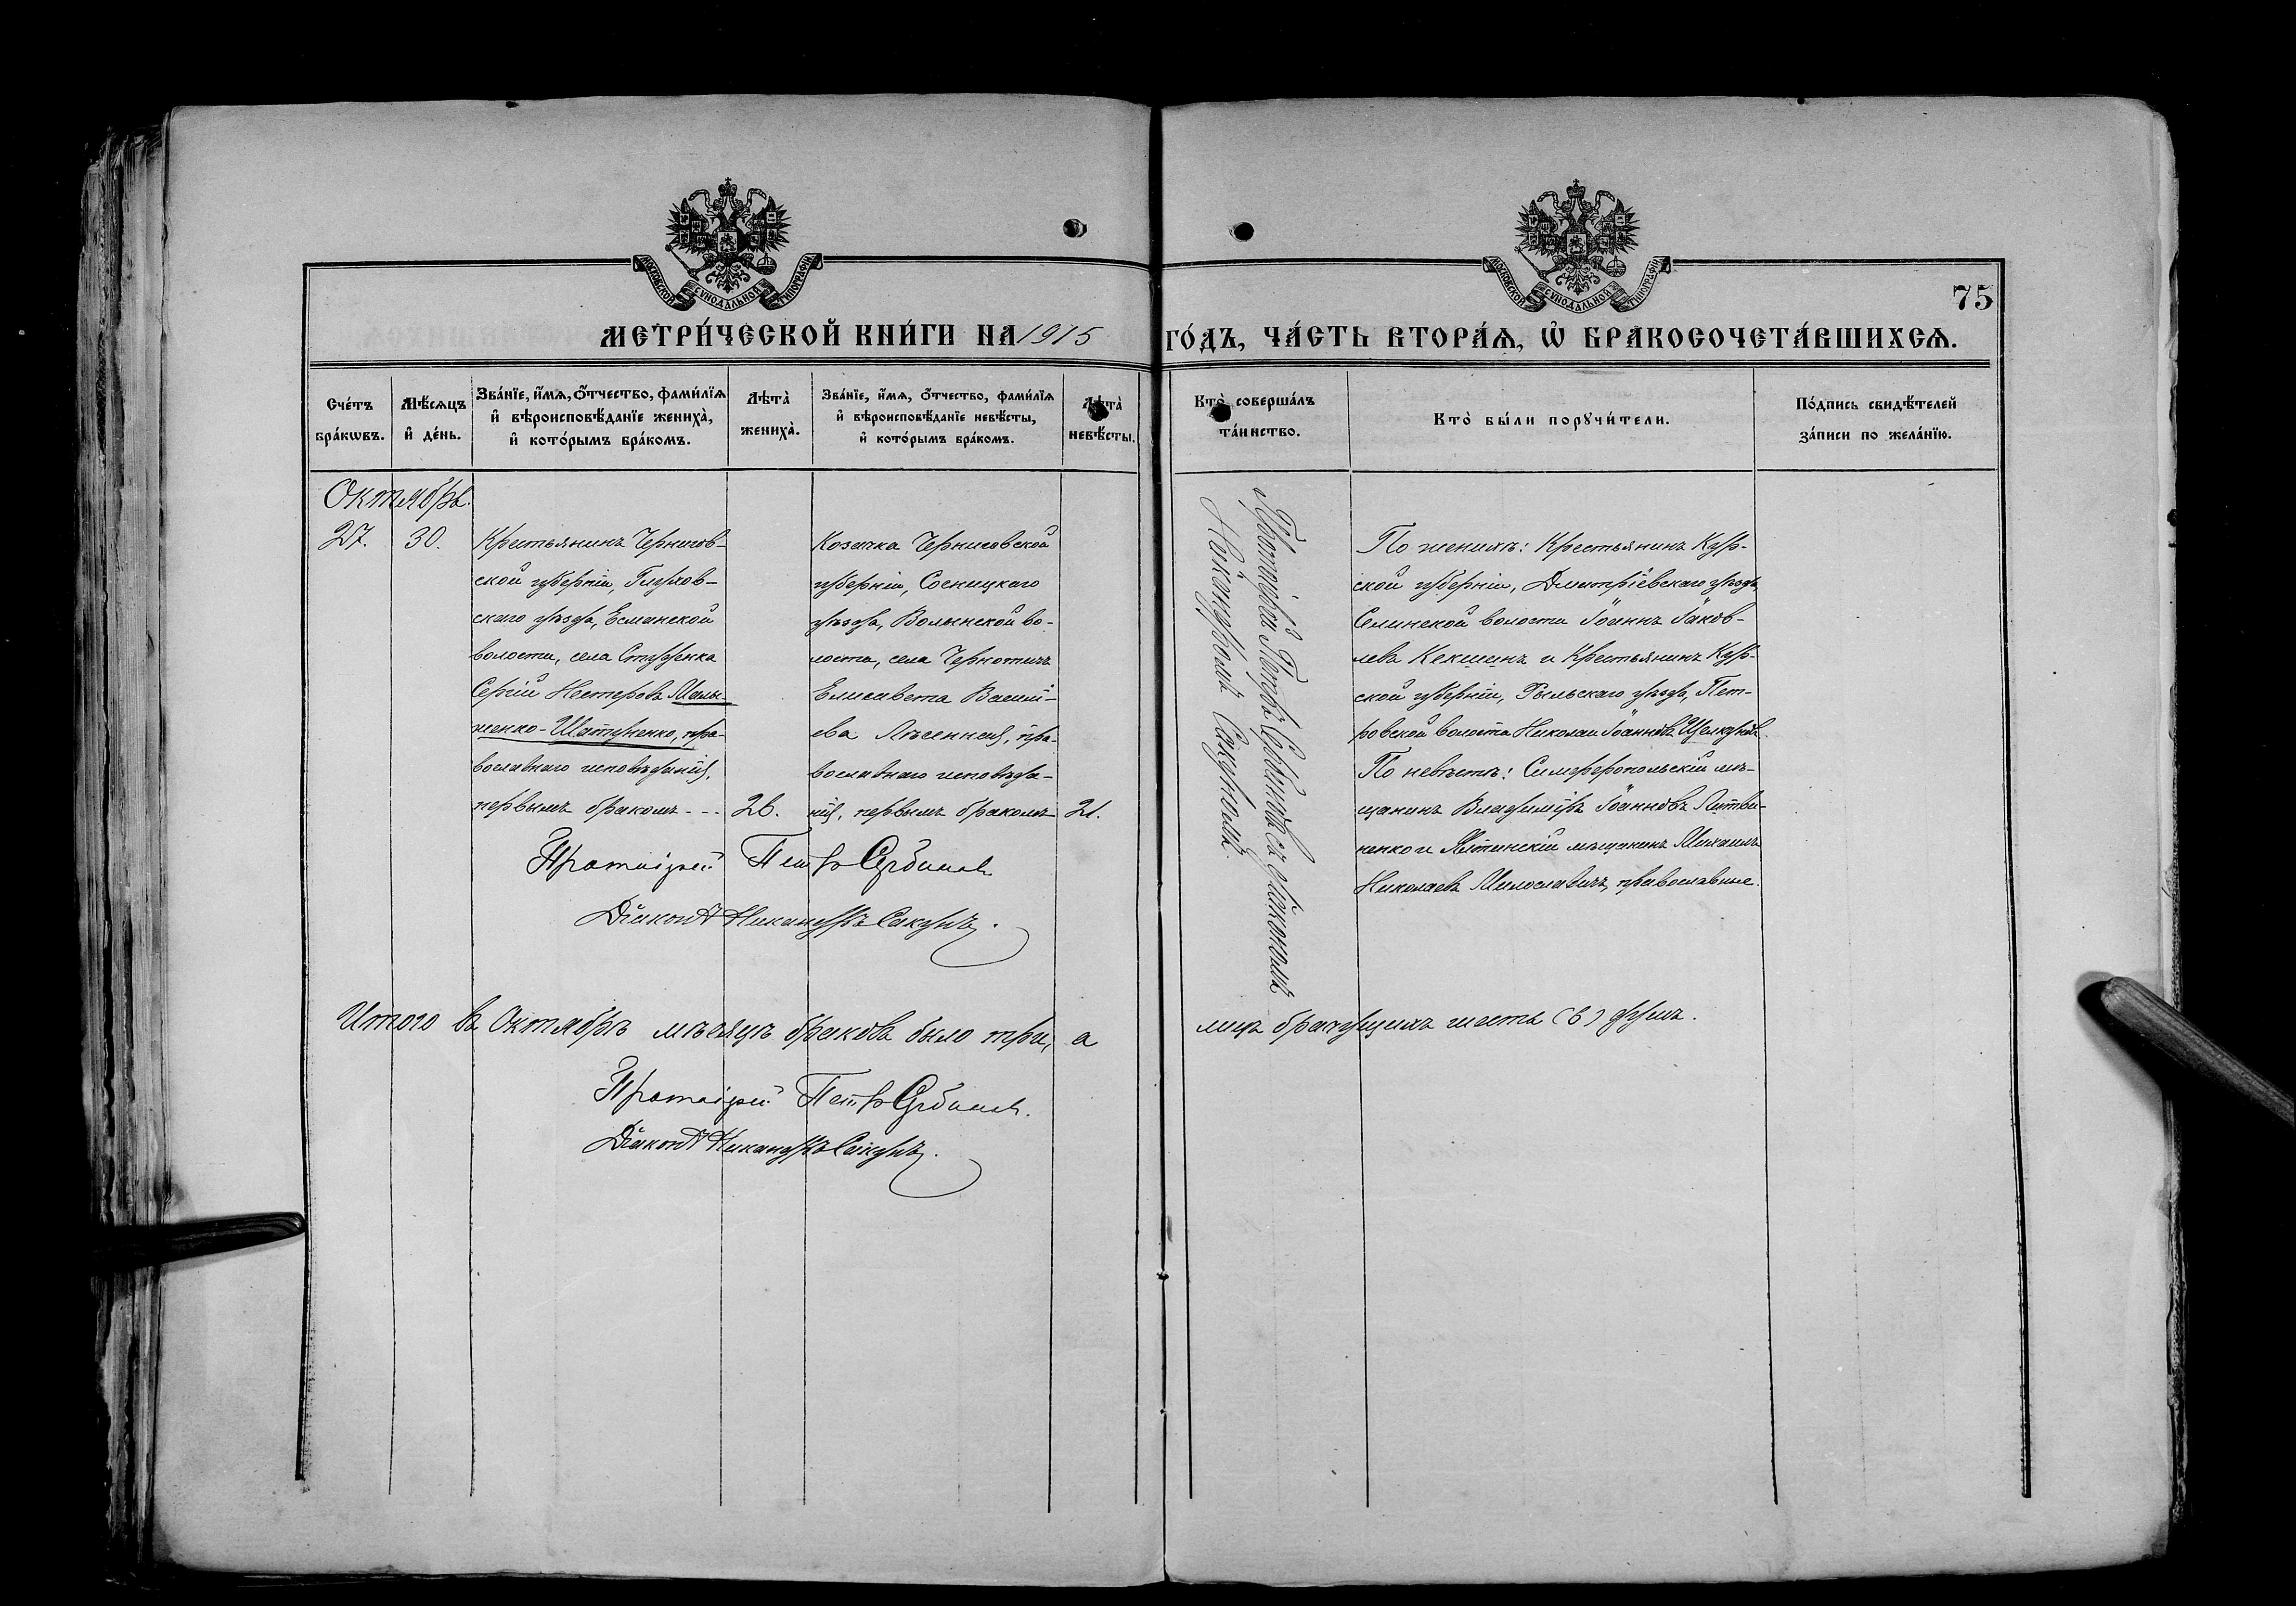 МОСКОВСКОЙ СѴНОДАЛЬНОЙ ТИПОГРАФІИ
МОСКОВСКОЙ СѴНОДАЛЬНОЙ ТИПОГРАФІИ
75
МЕТРИ́ЧЕСКОЙ КНИ́ГИ НА 1915 ГО́ДЪ, ЧА́СТЬ ВТОРА́Ѧ, Ѽ БРАКОСОЧЕТА́ВШИХСѦ.
Сче́тъ бра́кѡвъ.
Мѣ́сѧцъ и҆ де́нь.
Зва́нїе, и҆́мѧ, ѻ҆́тчество, фами́лїѧ
и҆ вѣроисповѣ́данїе жениха̀,
и҆ кото́рымъ бра́комъ.
Лѣта̀ жениха̀.
Зва́нїе, и҆́мѧ, ѻ҆́тчество, фами́лїѧ
и҆ вѣроисповѣ́данїе невѣ́сты,
и҆ кото́рымъ бра́комъ.
Лѣта̀ невѣ́сты.
Кто̀ соверша́лъ та́инство.
Кто̀ бы́ли порꙋчи́тели.
По́дпись свидѣ́телей за́писи по жела́нїю.
Октябрь.
27. 30.
Крестьянинъ Чернигов-
ской губерніи, Глухов-
скаго уѣзда, Есманской
волости, села Студенка
Сергій Нестеровъ Малы-
женко-Шатуненко, пра-
вославнаго исповѣданія,
первымъ бракомъ --- 26.
Козачка Черниговской
губерніи, Сосницкаго
уѣзда, Волынской во-
лости, села Чернотичъ
Елисавета Василі-
ева Лѣсенная, пра-
вославнаго исповѣда-
нія, первымъ бракомъ 21.
Протоіерей Петръ Сербиновъ съ діакономъ
Никандромъ Сакуномъ.
По женихѣ: Крестьянинъ Кур-
ской губерніи, Дмитріевскаго уѣзда,
Селинской волости Іоаннъ Іаков-
левъ Кекшинъ и Крестьянинъ Кур-
ской губерніи, Рыльскаго уѣзда, Пет-
ровской волости Николай Іоанновъ Щелкуновъ.
По невѣстѣ: Симферопольскій мѣ-
щанинъ Владиміръ Іоанновъ Литви-
ненко и Ялтинскій мѣщанинъ Михаилъ
Николаевъ Милославичъ, православные.
Протоіерей Петръ Сербиновъ
Діаконъ Никандръ Сакунъ.
Итого въ Октябрѣ мѣсяцѣ браковъ было три, а лицъ брачущихся шесть (6) душъ.
Протоіерей Петръ Сербиновъ.
Діаконъ Никандръ Сакунъ.